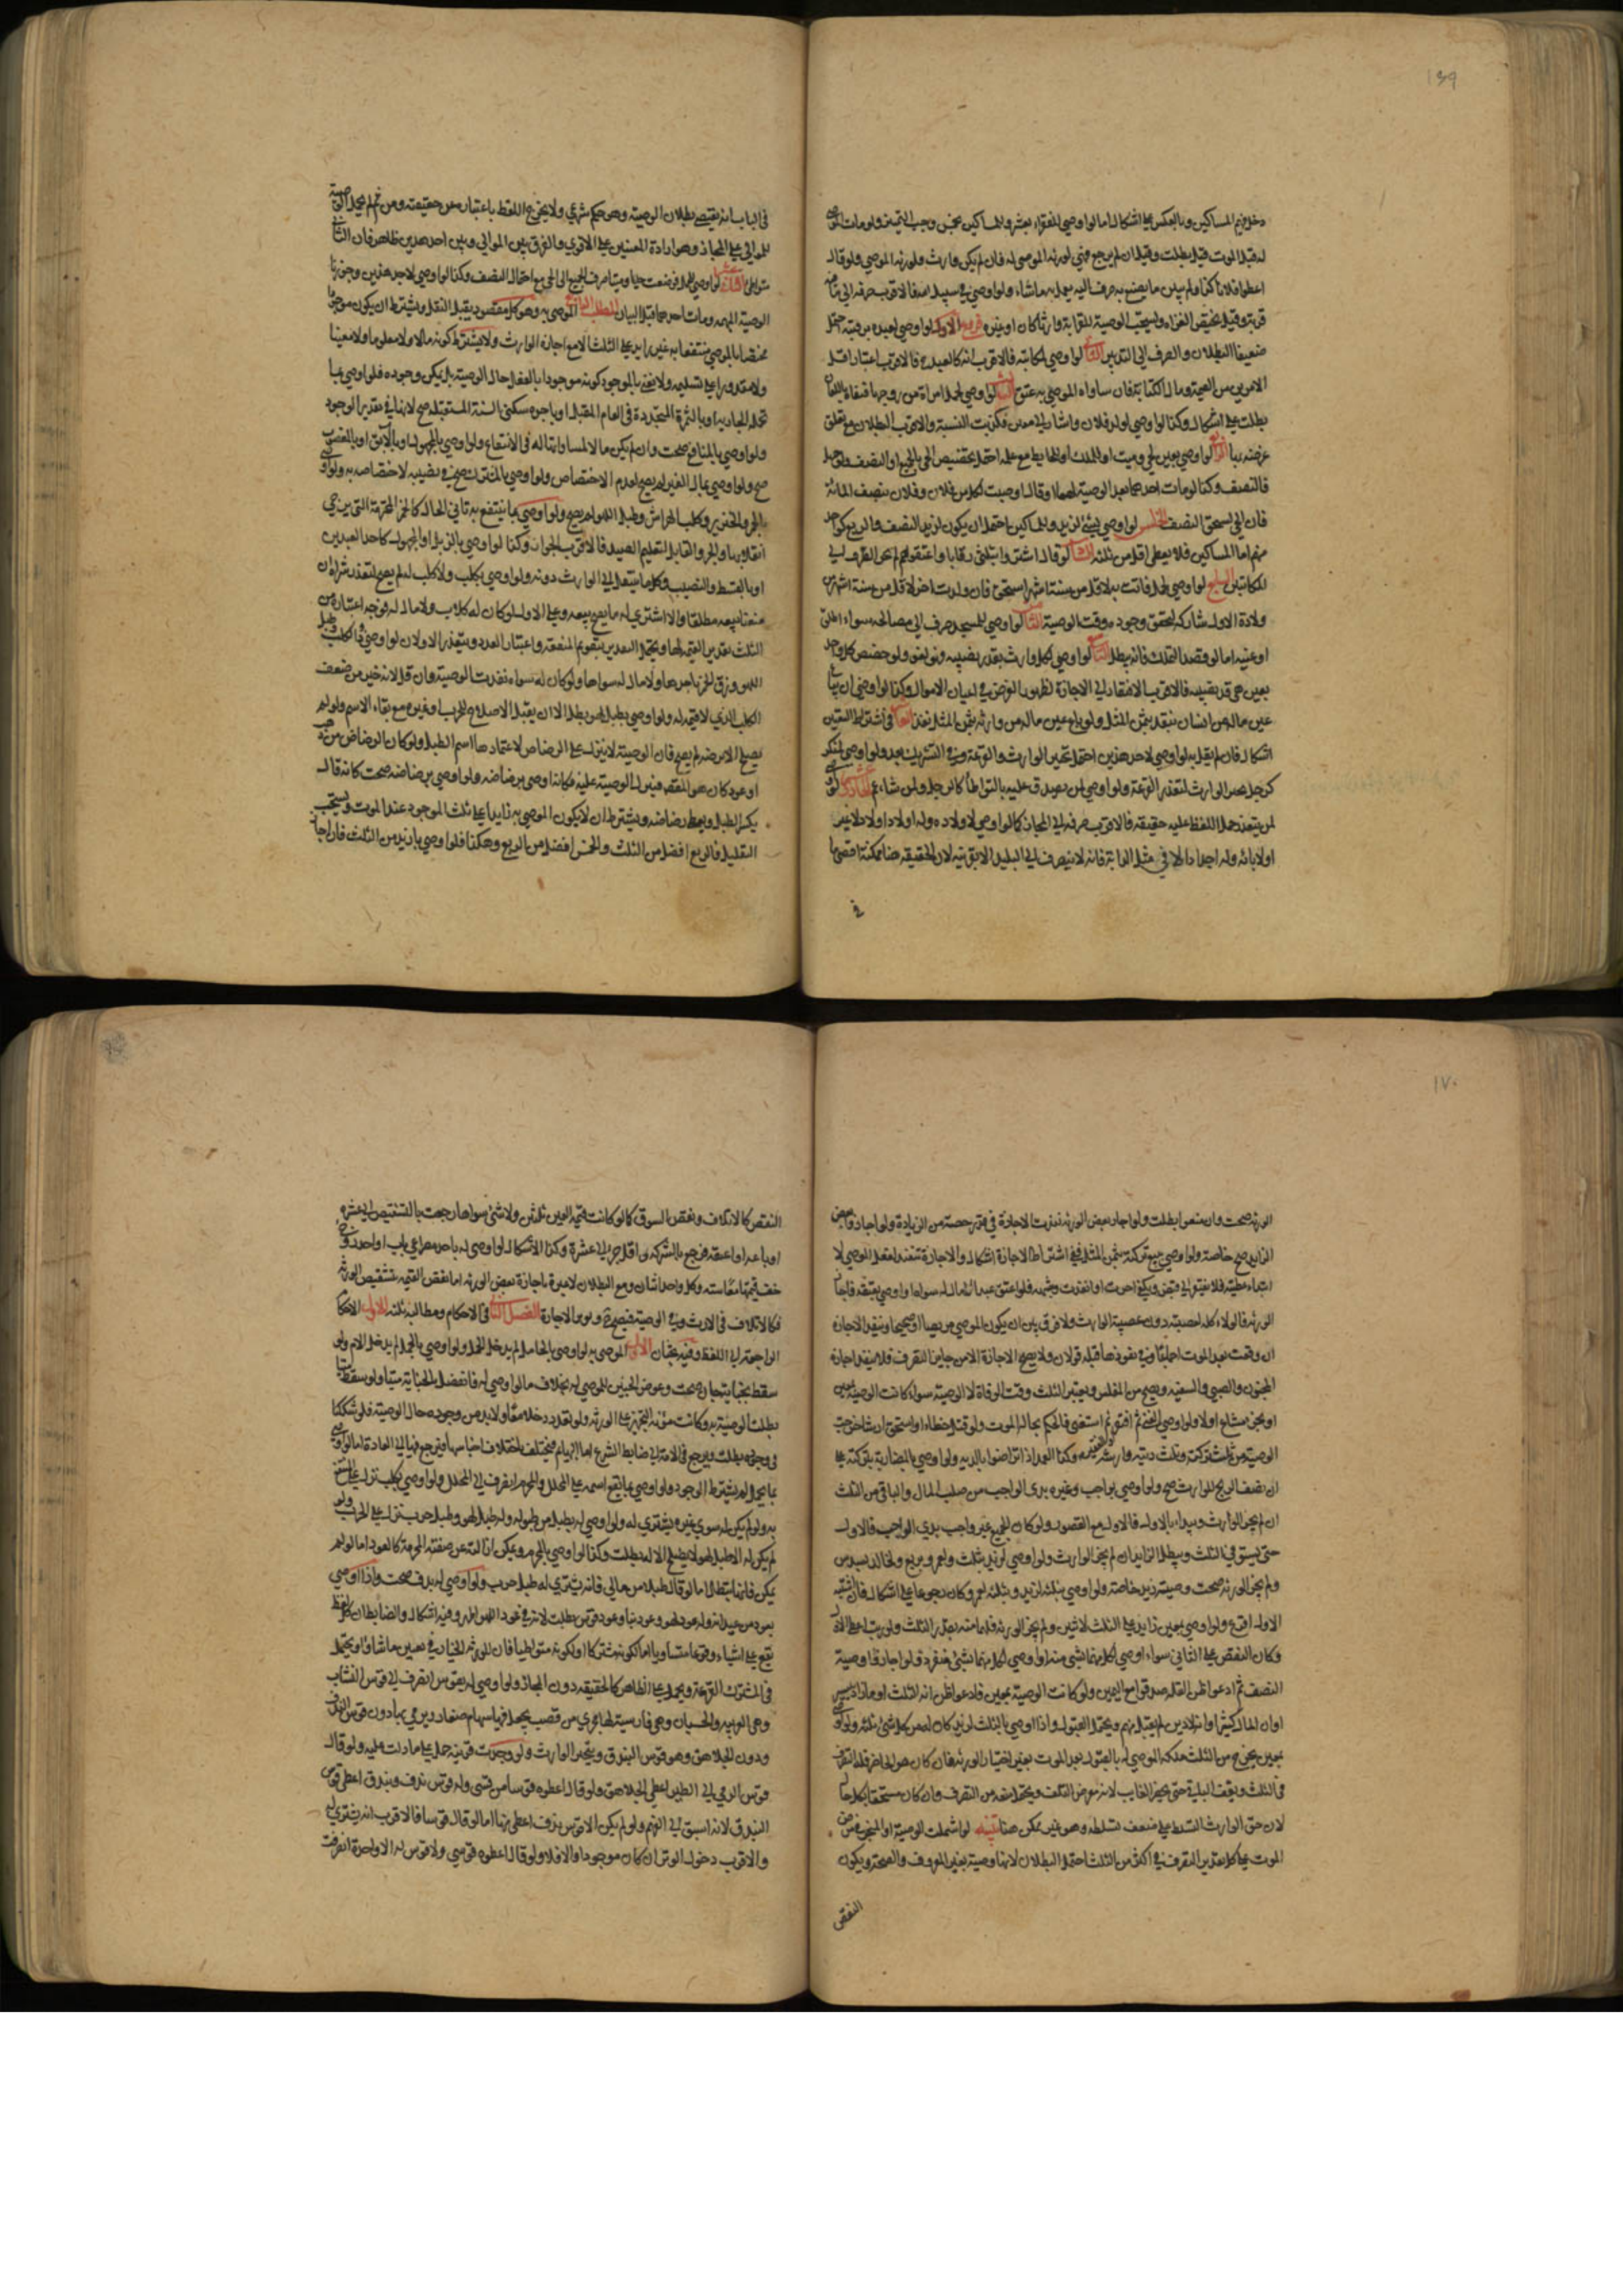 ١٦٩
دخل فيهم المساكين وبالعكس على اشكال اما لو اوصى للفقراء بعشر وللمساكين بخمس وجب التمييز ولو مات الموصى
له قبل الموت قيل بطلت وقيل ان لم يرجع فهي لورثة الموصى له فان لم يكن وارث فلورثة الموصي ولو قال
اعطوا فلانا كذا ولم يبين ما يصنع به صرف اليه يعمل به ما شاء ولو اوصى في سبيل الله فالاقرب صرفه الى ما فيه
قربة وقيل يختص الغزاة ويستحب الوصية للقرابة وارثا كان او غيره فروع الاول لو اوصى لعبده برقبته احتمل
ضعيفا البطلان والصرف الى التدبير الثاني لو اوصى لمكاتبه فالاقرب انه كالعبد فالاقرب اعتبار اقل
الامرين من القيمة ومال الكتابة فان ساواه الموصى به عتق الثالث لو اوصى لحمل امراة من زوجها فنفاه باللعان
بطلت على اشكال وكذا لو اوصى لولد فلان واشار الى معين فكذبت النسبة والاقرب البطلان مع تعلق
غرضه بها الرابع لو اوصى بعين لحي وميت او للملك او الحايط مع علمه احتمل تخصيص الحي بالجميع او النصف ولو جهل
فالنصف وكذا لو مات احدهما بعد الوصية لهما او قال اوصيت لكل من فلان وفلان بنصف المائة
فان الحي يستحق النصف الخامس لو اوصى بشئ لزيد وللمساكين احتمل ان يكون لزيد النصف والربع كواحد
منهم اما المساكين فلا يعطى اقل من ثلثة السادس لو قال اشتر وا بثلثي رقابا واعتقوهم لم يجز الصرف الى
المكاتبين السابع لو اوصى لحمل فاتت به لاقل من ستة اشهر استحق فان ولدت اخر لاقل من ستة اشهر من
ولادة الاول شاركه لتحقق وجوده وقت الوصية الثامن لو اوصى للمسجد صرف الى مصالحه سواء اطلق
او عينه اما لو قصد التملك فانه يبطل التاسع لو اوصى لكل وارث بقدر نصيبه فهو لغو ولو خصص كل واحد
بعين هي قدر نصيبه فالاقرب الافتقار الى الاجازة لظهور الغرض في اعيان الاموال وكذا لو اوصى ان يباع
عين ماله من انسان بنقد بثمن المثل ولو باع عين ماله من وارثه بثمن المثل نفذ العاشر في اشتراط التعيين
اشكال فان لم نقل به لو اوصى لاحد هذين احتمل تخيير الوارث والقرعة وفي التشريك بعد ولو اوصى لمنكر
كرجل تخير الوارث لتعذر القرعة ولو اوصى لمن يصدق عليه بالتواطأ كالرجل ولمن شاء الحادي عشر لو اوصى
لمن يتعذر حمل اللفظ عليه حقيقة فالاقرب صرفه الى المجاز كما لو اوصى لاولاده وله اولاد اولاد لا غير
او لابائه وله اجداد الا في مثل الدابة فانه لا ينصرف الى البليد الابقرينة لان الحقيقة هنا ممكنة اقصى ما
في
في الباب انه يقتضي بطلان الوصية وهو حكم شرعي ولا يخرج اللفظ باعتباره عن حقيقته ومن ثم لم يحمل الوصية
للموالي على المجاز وهو ارادة المعنيين على الاقوى والفرق بين الموالي وبين احد هذين ظاهر فان الثاني
متواطئ الثاني عشر لو اوصى للحمل فوضعت حيا وميتا صرف الجميع الى الحي مع احتمال النصف وكذا لو اوصى لاحد هذين وجوزنا
الوصية المبهمة ومات احدهما قبل البيان المطلب الرابع الموصى به وهو كل مقصود يقبل النقل ويشترط ان يكون موجودا
مختصا بالموصي منتفعا به غير زايد على الثلث الا مع اجازة الوارث ولا يشترط كونه مالا ولا معلوما ولا معينا
ولا مقدورا على تسليمه ولا يعنى بالموجود كونه موجودا بالفعل حال الوصية بل يمكن وجوده فلو اوصى بما
تحمله الجارية او بالثمرة المتجددة في العام المقبل او باجرة سكنى السنة المستقبلة صح لانها في تقدير الوجود
ولو اوصى بالمنافع صحت وان لم يكن مالا لمساواتها له في الانتفاع ولو اوصى بالمجهول او بالآبق او بالمغصوب
صح ولو اوصى بمال الغير لم يصح لعدم الاختصاص ولو اوصى بالمشترك صح في نصيبه لاختصاصه به ولو اوصى
بالخمر والخنزير وكلب الهراش وطبل اللهو لم يصح ولو اوصى بما ينتفع به ثاني الحال كالخمر المحترمة التي يرجى
انقلابها والجرو القابل لتعليم الصيد فالاقرب الجواز وكذا لو اوصى بالزبل او المجهول كاحد العبدين
او بالقسط والنصيب وكلما يتعلل الى الوارث دونه ولو اوصى بكلب ولا كلب له لم يصح لتعذر شرائه ان
منعنا بيعه مطلقا والا اشترى له ما يصح بيعه وعلى الاول لو كان له كلاب ولا مال له فوجه اعتباره من
الثلث تقدير القيمة لها ويحتمل التقدير بتقويم المنفعة واعتبار العدد ويتعذر الاولان لو اوصى في الكلب وطبل
اللهو وزق الخمر باحدها ولا مال له سواها ولو كان له سواه نفذت الوصية وان قل لانه خير من ضعف
الكلب الذي لا قيمة له ولو اوصى بطبل لهو بطل الا ان يقبل الاصلاح للحرب او غيره مع بقاء الاسم ولو لم
يصلح الا برضه لم يصح فان الوصية لا ينزل على الرضاض لاعتمادها اسم الطبل ولو كان الرضاض من ذهب
او عود كان هو المقصود فينزل الوصية عليه فكانه اوصى برضاضه ولو اوصى برضاضه صحت كانه قال
يكسر الطبل ويعطى رضاضه ويشترط ان لا يكون الموصى به زايدا على ثلث الموجود عند الموت ويستحب
التقليل فالربع افضل من الثلث والخمس افضل من الربع وهكذا فلو اوصى بازيد من الثلث فان اجاز
١٧٠
الورثة صحت وان منعوا بطلت ولو اجاز بعض الورثة نفذت الاجازة في قدر حصته من الزيادة ولو اجازوا بعض
الزايد صح خاصة ولو اوصى ببيع تركته بثمن المثل ففي اشتراط الاجازة اشكال والاجازة تنفيذ لفعل الموصي لا
ابتداء عطية فلا يفتقر الى قبض ويكفي اجزت او انفذت وشبهه فلو اعتق عبدا لا مال له سواه او اوصى بعتقه فاجاز
الورثة فالولاء كله لعصبته دون عصبة الوارث ولا فرق بين ان يكون الموصي مريضا او صحيحا وينفذ الاجازة
ان وقعت بعد الموت اجماعا وفي نفوذها قبله قولان ولا يصح الاجازة الا من جايز التصرف فلا ينفذ اجازة
المجنون والصبي والسفيه ويصح من المفلس ويعتبر الثلث وقت الوفاة لا الوصية سواء كانت الوصية بعين
او بجزء مشاع او لا ولو اوصى الغني ثم افتقر ثم استغنى فالحكم بحال الموت ولو قتل خطاء او استحق ارشا خرجت
الوصية من ثلث تركته وثلث ديته وارشه وكذا العمد اذا تراضوا بالدية ولو اوصى بالمضاربة بتركته على
ان نصف الربح للوارث صح ولو اوصى بواجب وغيره بدئ الواجب من صلب المال والباقي من الثلث
ان لم يجز الوارث ويبداء بالاول فالاول مع القصور ولو كان الجميع غير واجب بدئ الواجب فالاول
حتى يستوفي الثلث ويبطل الزايد ان لم يجز الوارث ولو اوصى لزيد بثلث ولعمرو بربع ولخالد بسدس
ولم يجز الورثة صحت وصيته لزيد خاصة ولو اوصى بثلثه لزيد وبثلثه لعمرو كان رجوعا على اشكال فان اشتبه
الاول اقرع ولو اوصى بعين زايد على الثلث لاثنين ولم يجز الورثة فلهما منه بقدر الثلث ولو رتب اعطى الاول
وكان النقص على الثاني سواء اوصى لكل منهما بشئ منه او اوصى لكل منهما بشئ منفرد ولو اجازوا وصية
النصف ثم ادعوا ظن القلة صدقوا مع اليمين ولو كانت الوصية بعين فادعوا ظن انه الثلث او ما زاد بيسير
او ان المال كثيرا وانه لا دين لم يقبل منهم ويحتمل القبول واذا اوصى بالثلث لزيد كان له من كل شئ ثلثه ولو اوصى
بمعين يخرج من الثلث ملكه الموصى له بالقبول بعد الموت بغير اختيار الورثة فان كان هو الحاضر فله التصرف
في الثلث ويقف البقية حتى يحضر الغايب لانه معرض التلف ويحتمل منعه من التصرف وان كان مستحقا بكل حال
لان حق الوارث التسلط على ضعف تسلطه وهو غير ممكن هنا تنبيه لو اشتملت الوصية او المنجز في مرض
الموت بما كل تقدير التصرف في اكثر من الثلث احتمل البطلان لانها وصية بغير المعروف والصحة ويكون
النقص
النقص كالاتلاف ونقص السوق كما لو كانت قيمة العين ثلثين ولا شئ سواها رجعت بالتشقيص الى عشرة
او باعه او اعتقه فرجع بالشركة واقل جزء الى عشرة وكذا الاشكال لو اوصى له باحد مصراعي باب او احد زوجي
خف قيمتهما معا ستة وكل واحد اثنان ومع البطلان لا عبرة باجازة بعض الورثة اما نقص القيمة بتشقيص الورثة
فكالاتلاف في الارث وفي الوصية فيصح ولو مع الاجازة الفصل الثاني في الاحكام ومطالبه ثلثة الاول الاحكام
الراجعة الى اللفظ وفيه بحثان الاول الموصى به لو اوصى بالحامل لم يدخل الحمل ولو اوصى بالحمل لم يدخل الام ولو
سقط بجناية جان صحت وعوض الجنين للموصى له بخلاف ما لو اوصى له فانفصل بالجناية ميتا ولو سقط ميتا
بطلت الوصية به وكانت مؤنة التجهيز على الورثة ولو تعدد دخلا معا ولا بد من وجوده حال الوصية فلو شككنا
في وجوده بطلت ويرجع في الامة الى ضابط الشرع اما البهايم فيختلف باختلاف اجناسها فيرجع فيها الى العادة اما لو اوصى
بما يحمل لم يشترط الوجود ولو اوصى بما يقع اسمه على المحلل والمحرم انصرف الى المحلل ولو اوصى بكلب نزل على المنتفع
به ولو لم يكن له سوى غيره يشترى له ولو اوصى له بطبل من طبوله وله طبل لهو وطبل حرب نزل على الحرب ولو
لم يكن له الا طبل لهو لا يصلح الا له بطلت وكذا لو اوصى بالمحرم ويمكن ازالته عن صفته المحرمة كالعود اما لو لم
يمكن فانها تبطل اما لو قال طبلا من مالي فانه يشترى له طبل حرب ولو اوصى له بدف صحت واذا اوصى
بعود من عيدانه وله عود لهو وعود بناء وعود قوس بطلت لانه في عود اللهو اظهر وفيه اشكال والضابط ان كل لفظ
يقع على اشياء وقوعا متساويا اما لكونه مشتركا او لكونه متواطيا فان للورثة الخيار في تعيين ما شاؤا ويحتمل
في المشترك القرعة ويحمل على الظاهر كالحقيقة دون المجاز ولو اوصى له بقوس انصرف الى قوس النشاب
وهي العربية والحسبان وهي فارسية لها مجرى من قصب يجعل فيها سهام صغار ويرمى بها دون قوس الندف
ودون الجلاهق وهو قوس البندق ويتخير الوارث ولو وجدت قرينة حمل على ما دلت عليه ولو قال
قوس الرمي الى الطير اعطي الجلاهق ولو قال اعطوه قوسا من قسي وله قوس ندف وبندق اعطي قوس
البندق لانه اسبق الى الفهم ولو لم يكن الا قوس ندف اعطي منها اما لو قال قوسا فالاقرب انه يشترى له
والاقرب دخول الوتر ان كان موجودا والا فلا ولو قال اعطوه قوسي ولا قوس له الا واحدة انصرفت